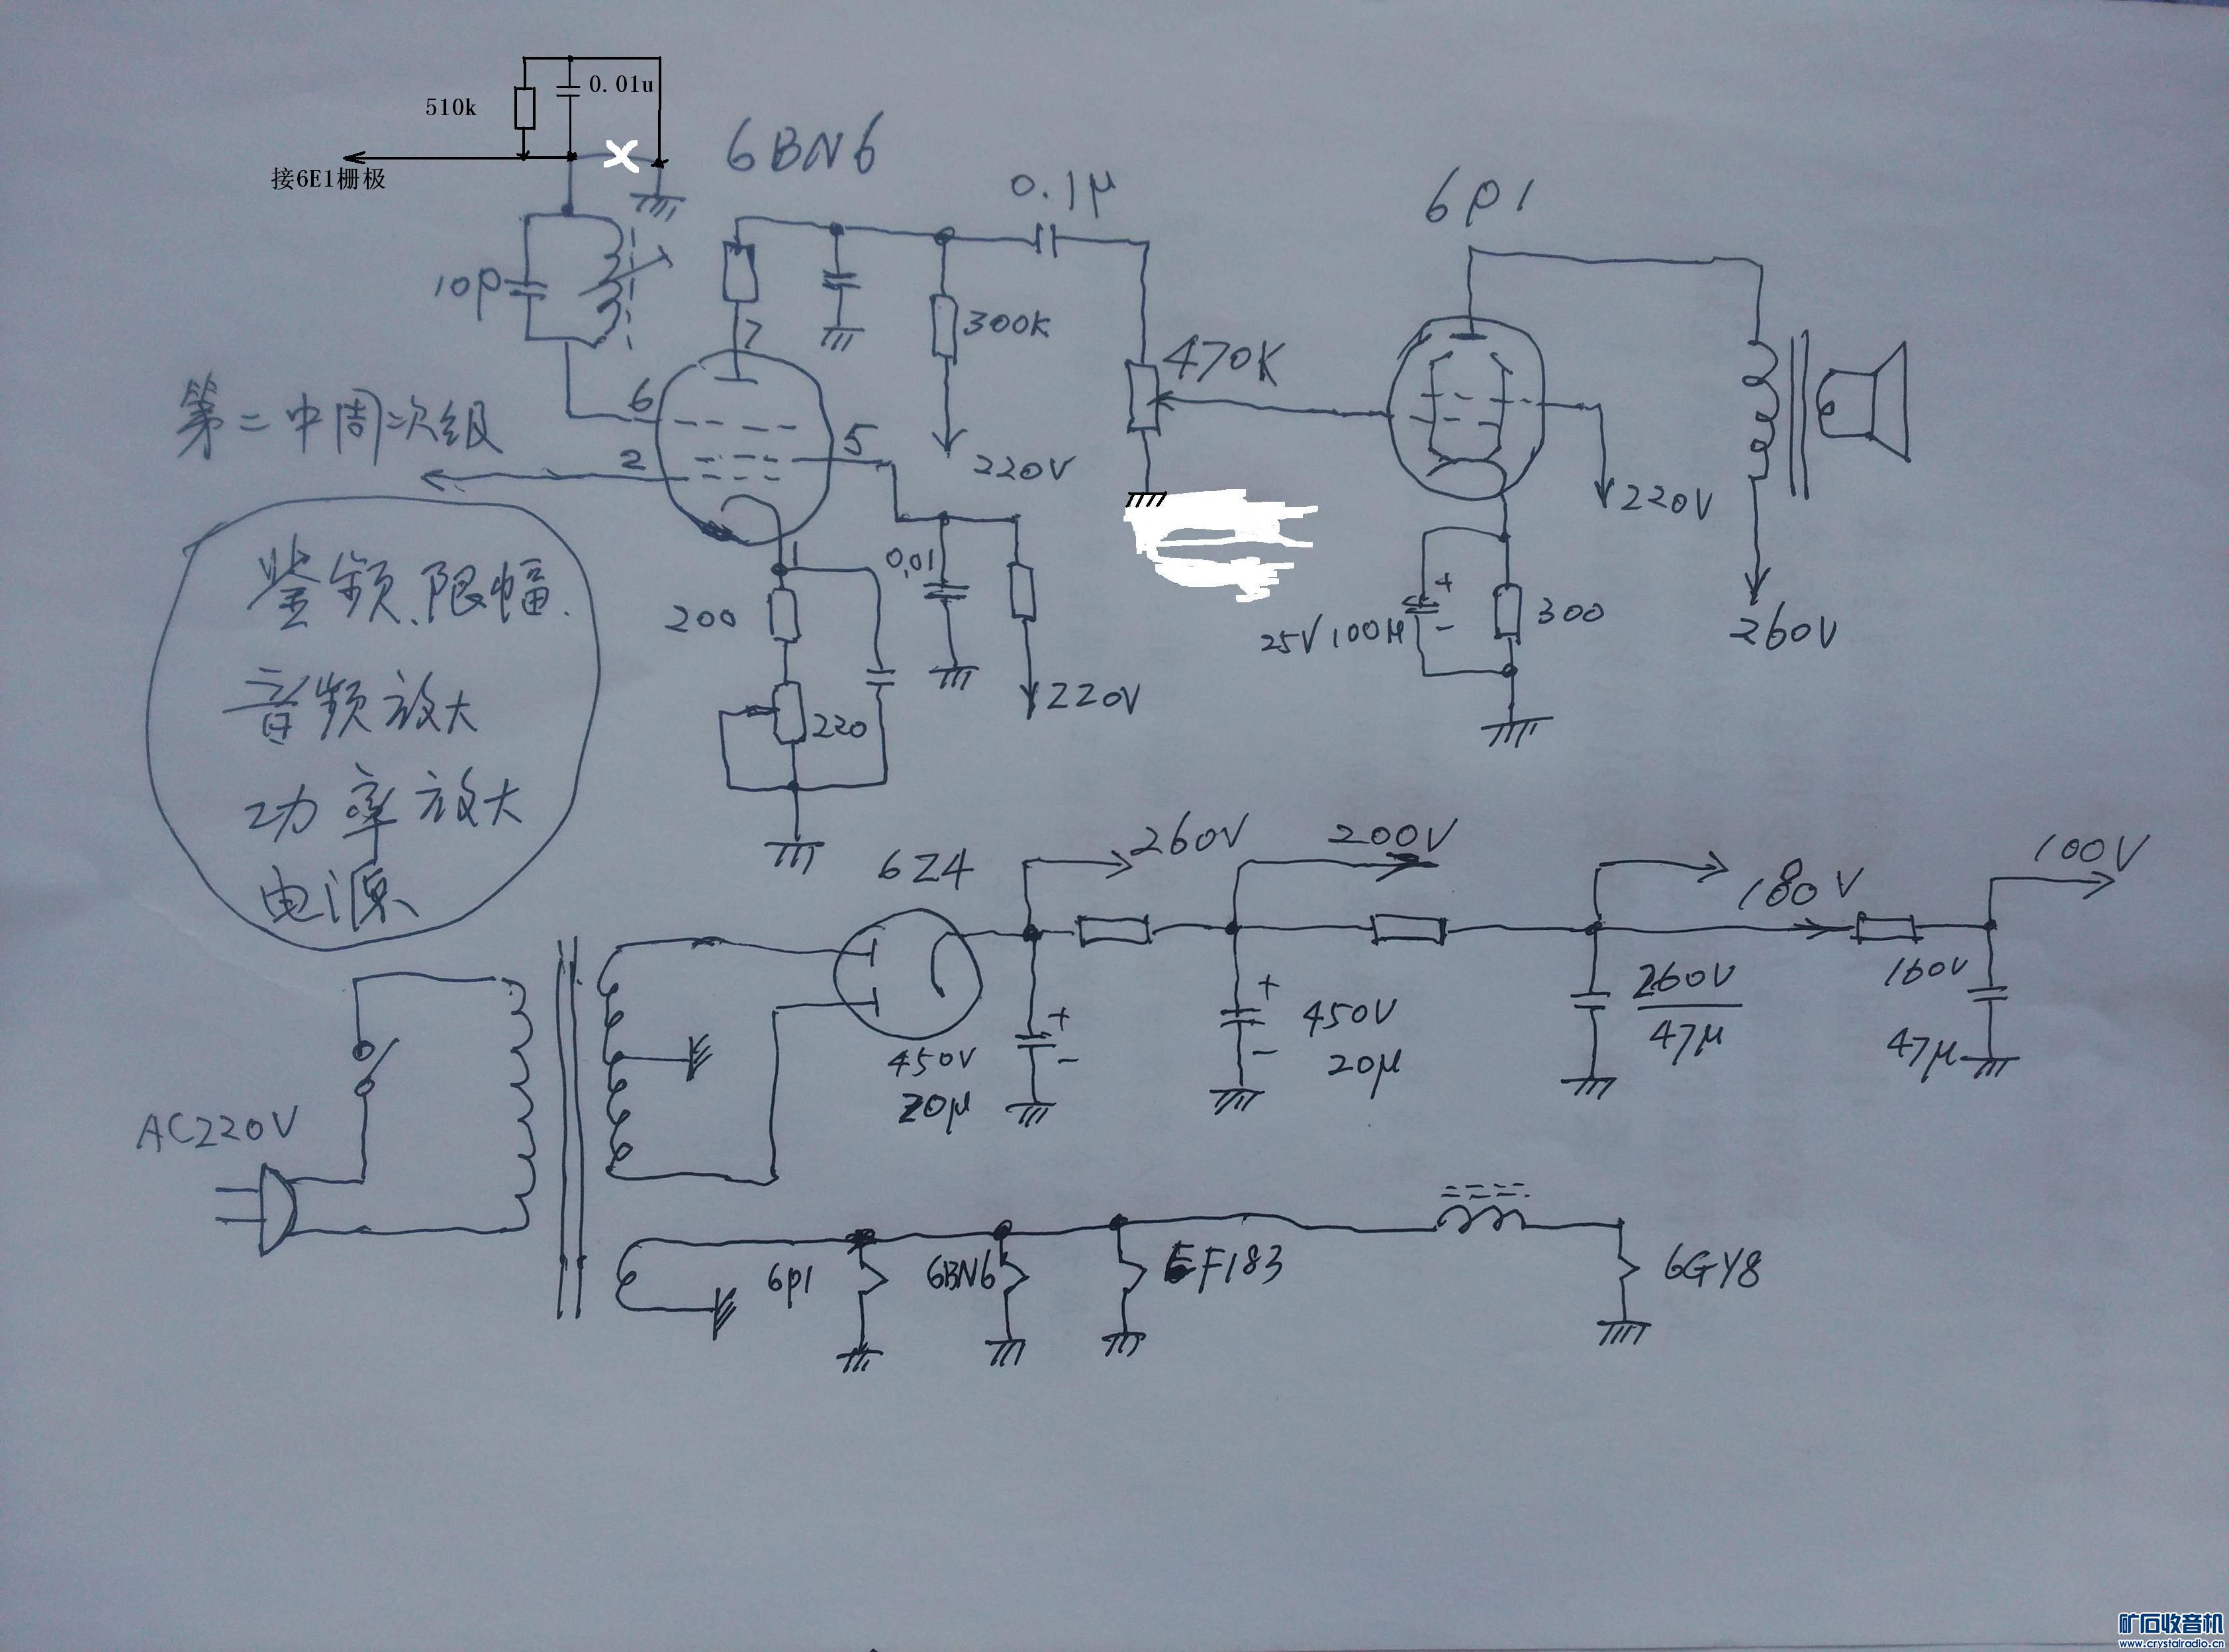 510k
0.01u
接6E1栅极
6BN6
0.1μ
6P1
10p
7
300K
470K
第二中周次组
6
2
5
220V
220V
鉴频、限幅、
音频放大
功率放大
电源
1
0.01
200
220
220V
+
-
25V 100μ
300
260V
6Z4
260V
200V
180V
100V
450V
20μ
+
-
+
-
450V
20μ
260V
47μ
160V
47μ
AC220V
6P1
6BN6
EF183
6GY8
矿石收音机
www.crystalradio.cn